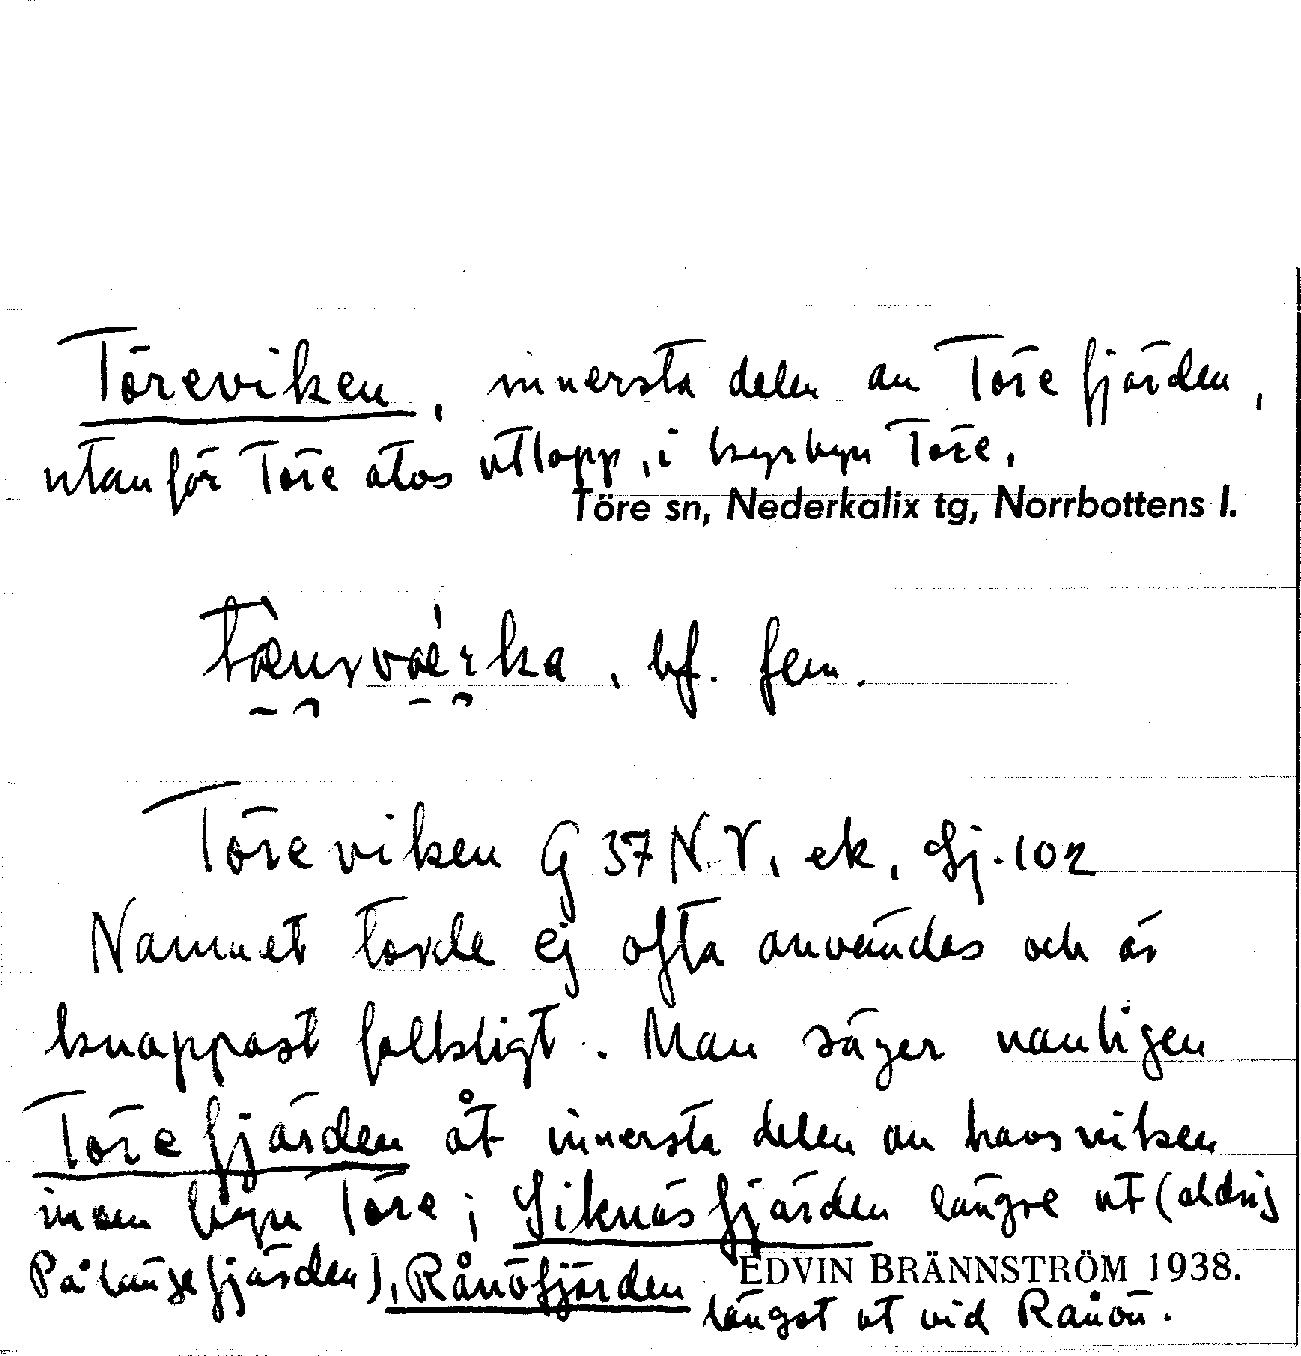 Töreviken, innersta delen av Töre fjärden,
utanför Töre älvs utlopp, i kyrkbyn Töre.
Töre sn, Nederkalix tg, Norrbottens l.
, bf. fem.
Töreviken G 37 N.V., ek, Sj. 102
Namnet torde ej ofta användas och är
knappast folkligt. Man säger vanligen
Törefjärden åt innersta delen av havsviken
inom byn Töre; Siknäsfjärden längre ut (aldrig
Pålängefjärden), Rånöfjärden
EDVIN BRÄNNSTRÖM 1938.
längst ut vid Rånön.